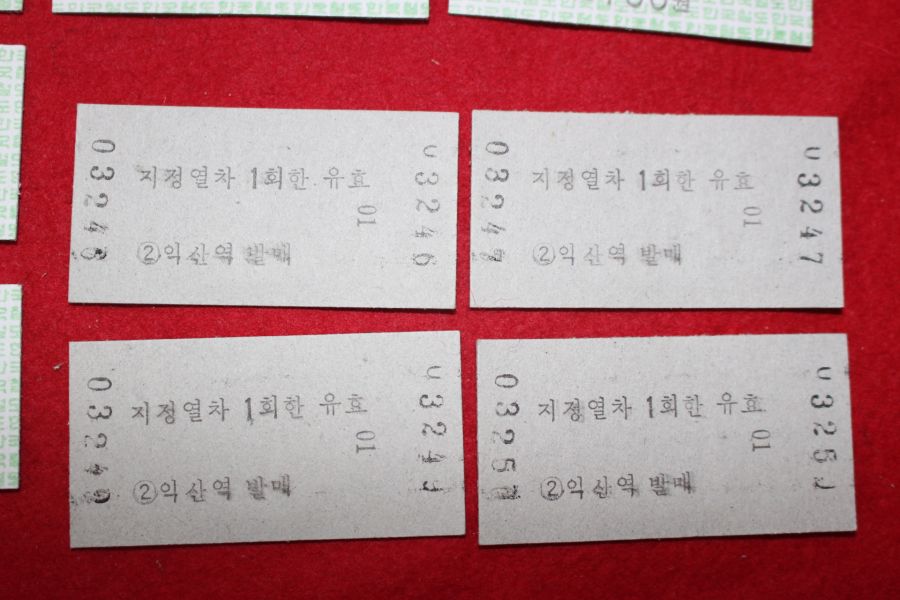 700원
03246
지정열차 1회한 유효
01
②익산역 발매
03246
03247
지정열차 1회한 유효
01
②익산역 발매
03247
지정열차 1회한 유효
01
②익산역 발매
지정열차 1회한 유효
01
②익산역 발매